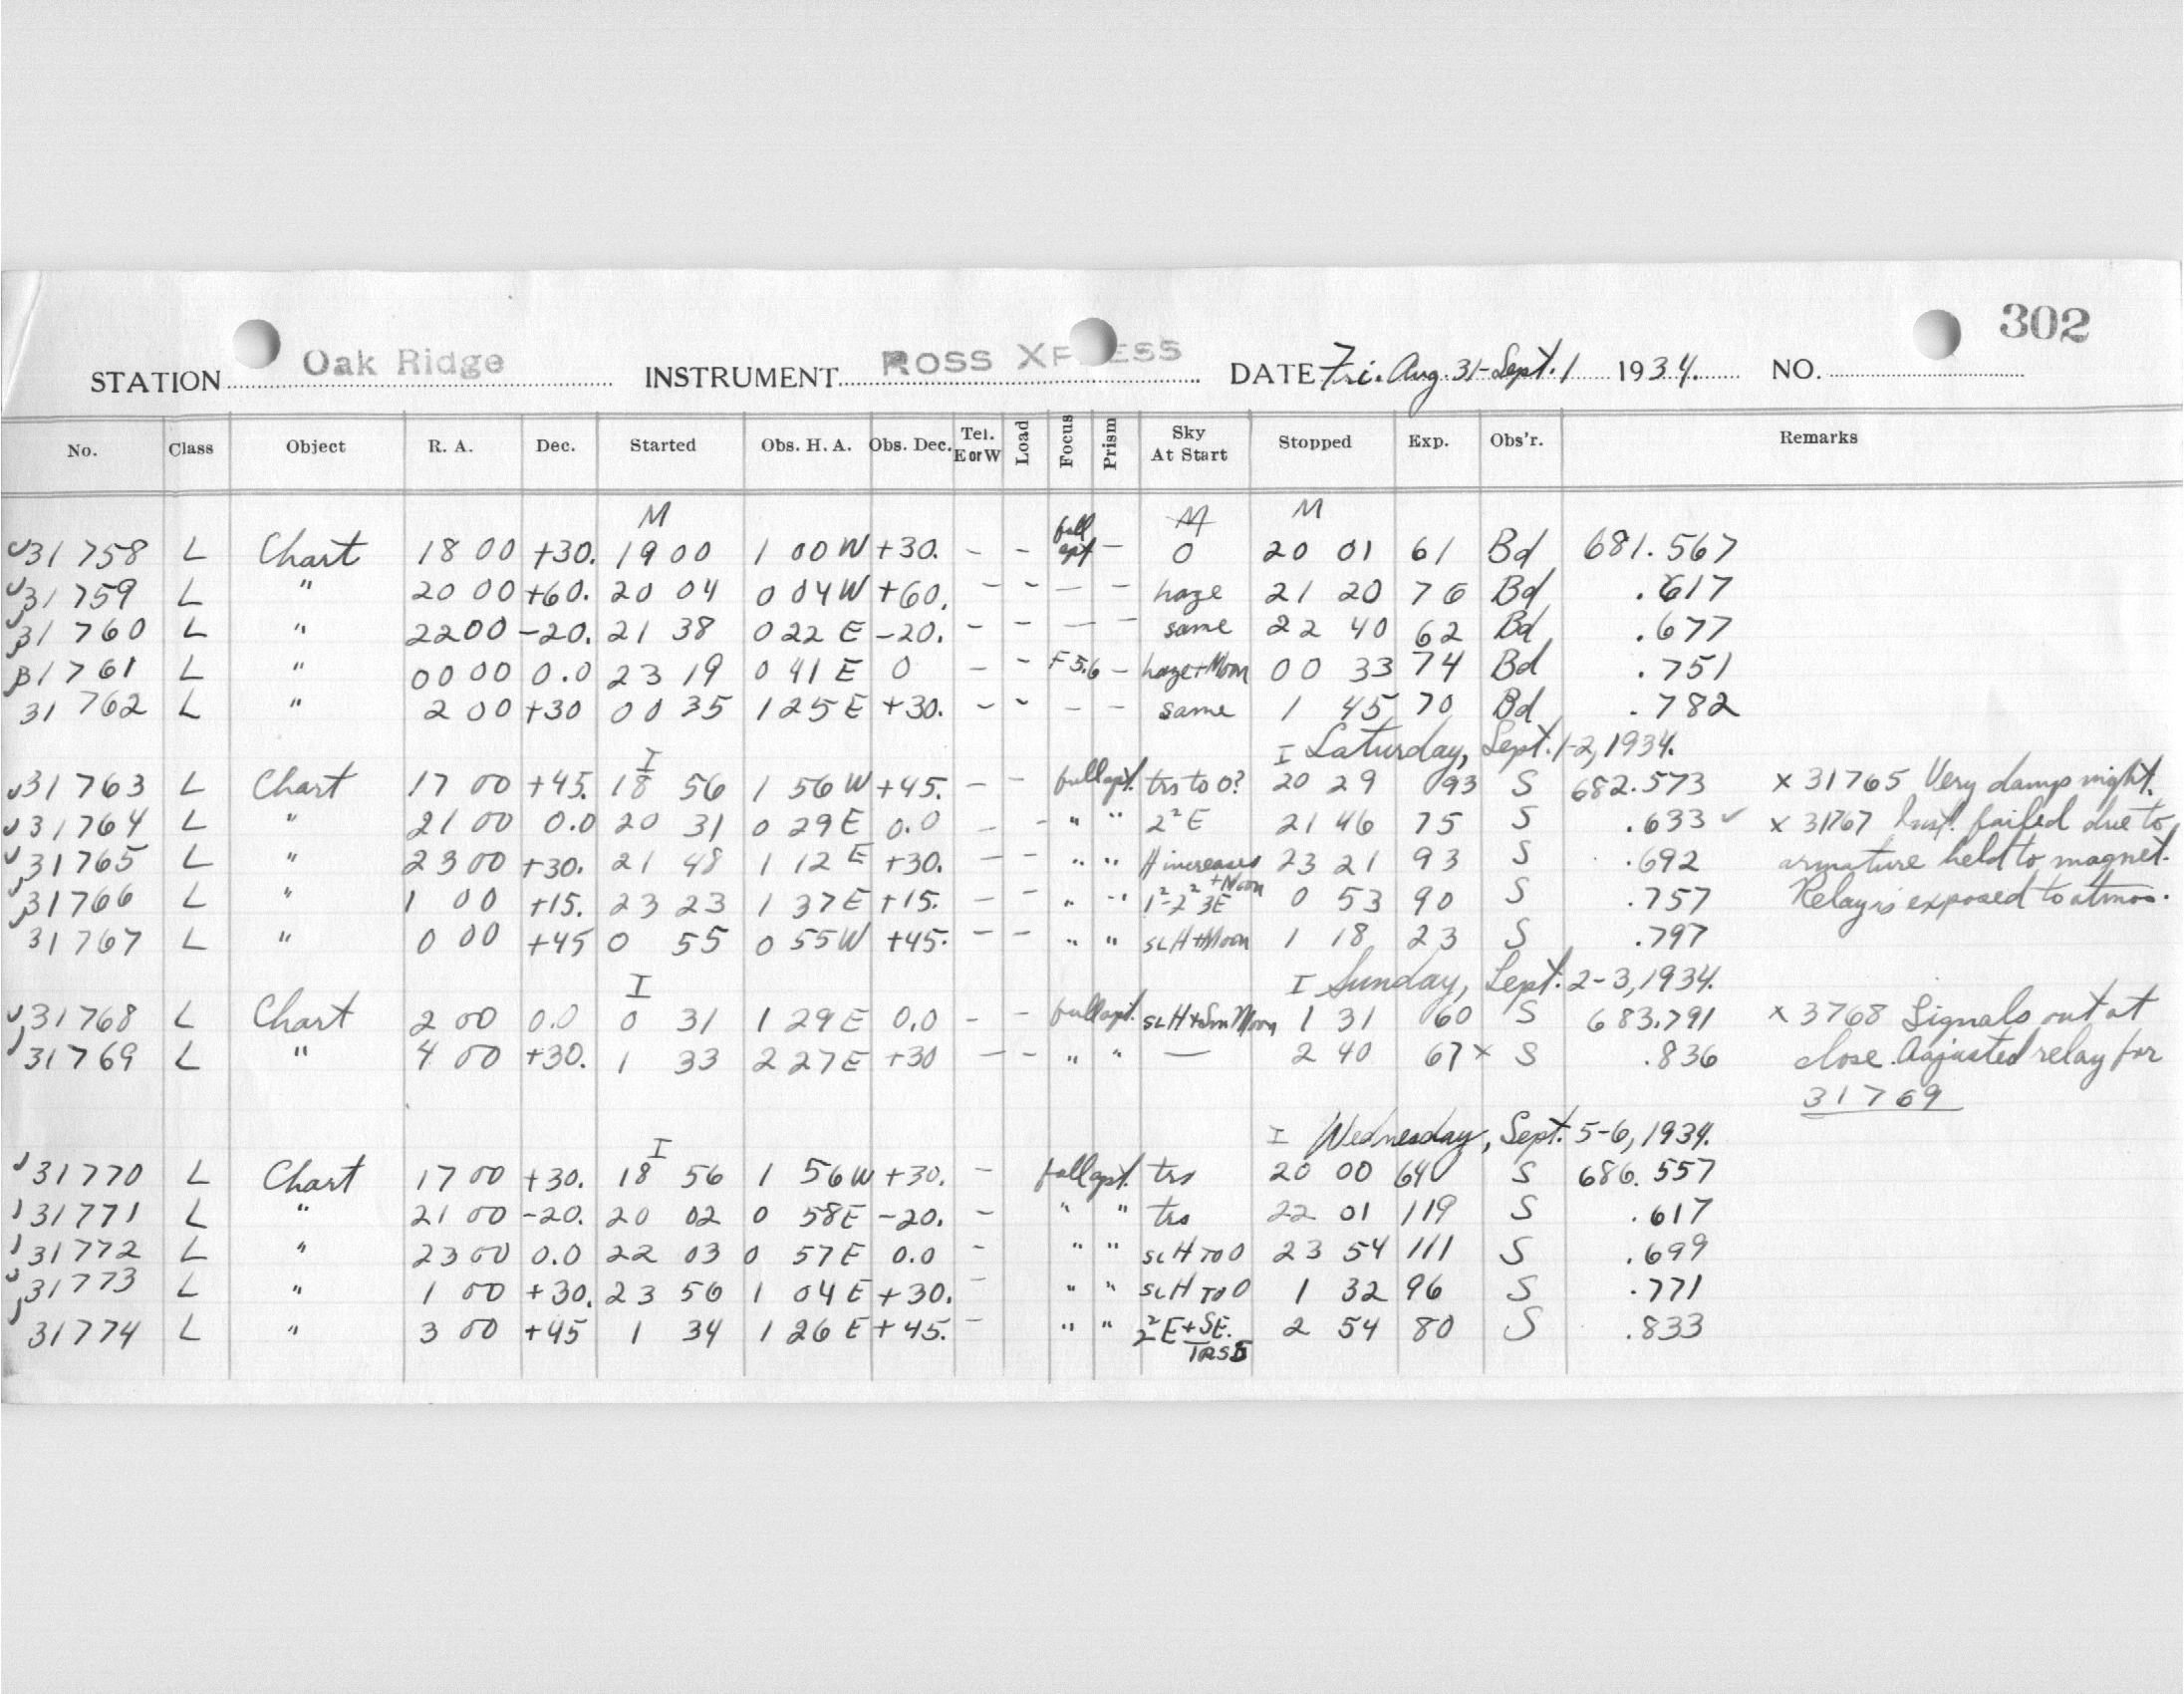 302
STATION Oak Ridge INSTRUMENT ROSS XPRESS DATE Fri. Aug. 31-Sept. 1 1934. NO.
No. Class Object R. A. Dec. Started Obs. H. A. Obs. Dec. Tel. E or W Load Focus Prism Sky At Start Stopped Exp. Obs'r. Remarks
M M M
31758 L Chart 18 00 +30. 19 00 1 00 W +30. - - full apt - 0 20 01 61 Bd 681.567
31759 L " 20 00 +60. 20 04 0 04 W +60. - - — - haze 21 20 76 Bd .617
31760 L " 22 00 -20. 21 38 0 22 E -20. - - — - same 22 40 62 Bd .677
31761 L " 00 00 0.0 23 19 0 41 E 0 - - F5.6 - haze+Moon 00 33 74 Bd .751
31762 L " 2 00 +30 00 35 1 25 E +30. - - - - same 1 45 70 Bd .782
I I Saturday, Sept. 1-2, 1934.
31763 L Chart 17 00 +45. 18 56 1 56 W +45. - - full apt. trs to 0? 20 29 093 S 682.573 x 31765 Very damp night.
31764 L " 21 00 0.0 20 31 0 29 E 0.0 - - " " 2² E 21 46 75 S .633 ✓ x 31767 Inst. failed due to
31765 L " 23 00 +30. 21 48 1 12 E +30. - - " " H increases 23 21 93 S .692 armature held to magnet.
31766 L " 1 00 +15. 23 23 1 37 E +15. - - " " 1²-2² 3E +Moon 0 53 90 S .757 Relay is exposed to atmos.
31767 L " 0 00 +45 0 55 0 55 W +45. - - " " scH+Moon 1 18 23 S .797
I I Sunday, Sept. 2-3, 1934.
31768 L Chart 2 00 0.0 0 31 1 29 E 0.0 - - full apt. scH+Sm Moon 1 31 060 S 683.791 x 3768 Signals out at
31769 L " 4 00 +30. 1 33 2 27 E +30 - - " " — 2 40 67 x S .836 close. Adjusted relay for
31769
I I Wednesday, Sept. 5-6, 1934.
31770 L Chart 17 00 +30. 18 56 1 56 W +30. - full apt. trs 20 00 64 S 686.557
31771 L " 21 00 -20. 20 02 0 58 E -20. - " " trs 22 01 119 S .617
31772 L " 23 00 0.0 22 03 0 57 E 0.0 - " " scH TO 0 23 54 111 S .699
31773 L " 1 00 +30. 23 56 1 04 E +30. - " " scH TO 0 1 32 96 S .771
31774 L " 3 00 +45 1 34 1 26 E +45. - " " 2² E+SE. 2 54 80 S .833